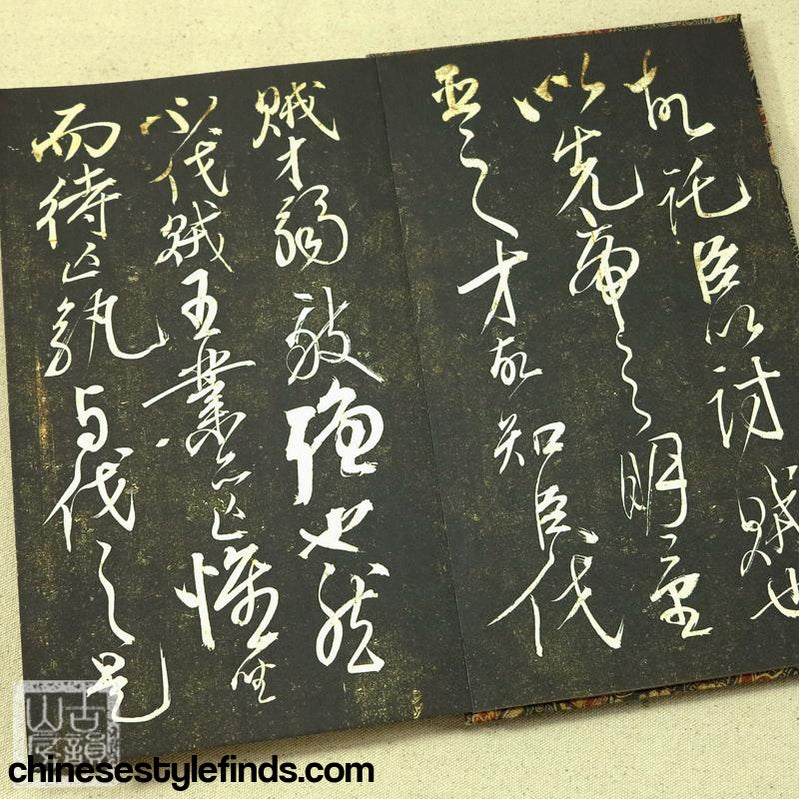 故託臣以討賊也
以先帝之明量
臣之才故知臣伐
賊才弱敵强也然
不伐賊王業亦亡惟坐
而待亡孰与伐之是
古韻山房
chinesestylefinds.com